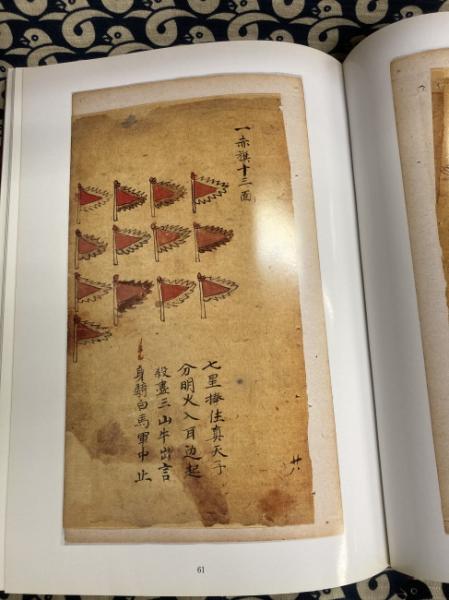 一赤旗十三面
七星捧法真天子
分明火入耳边起
殺盡三山牛出言
身騎白馬軍中止
廿八
61